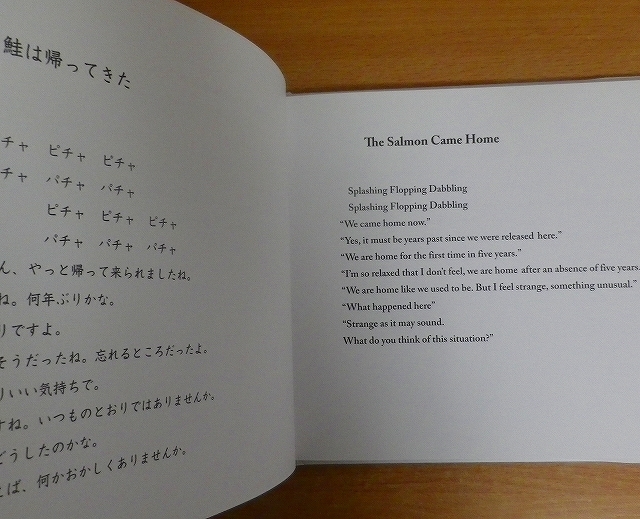 鮭は帰ってきた
チャ ピチャ ピチャ
チャ パチャ パチャ
ピチャ ピチャ ピチャ
パチャ パチャ パチャ
ん、やっと帰って来られましたね。
ね。何年ぶりかな。
りですよ。
そうだったね。忘れるところだったよ。
りいい気持ちで。
すね。いつものとおりではありませんか。
どうしたのかな。
とば、何かおかしくありませんか。
The Salmon Came Home
Splashing Flopping Dabbling
Splashing Flopping Dabbling
“We came home now.”
“Yes, it must be years past since we were released here.”
“We are home for the first time in five years.”
“I'm so relaxed that I don't feel, we are home after an absence of five years.
“We are home like we used to be. But I feel strange, something unusual.”
“What happened here”
“Strange as it may sound.
What do you think of this situation?”